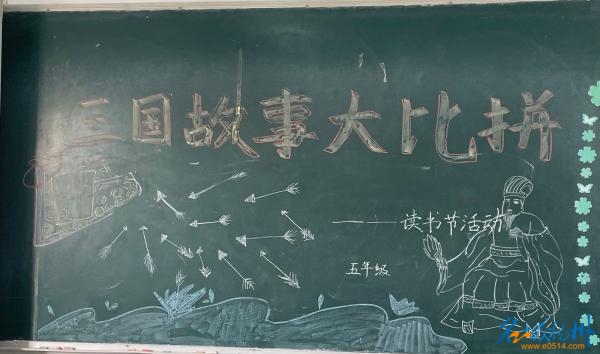 三国故事大比拼
——读书节活动
五年级
www.e0514.com